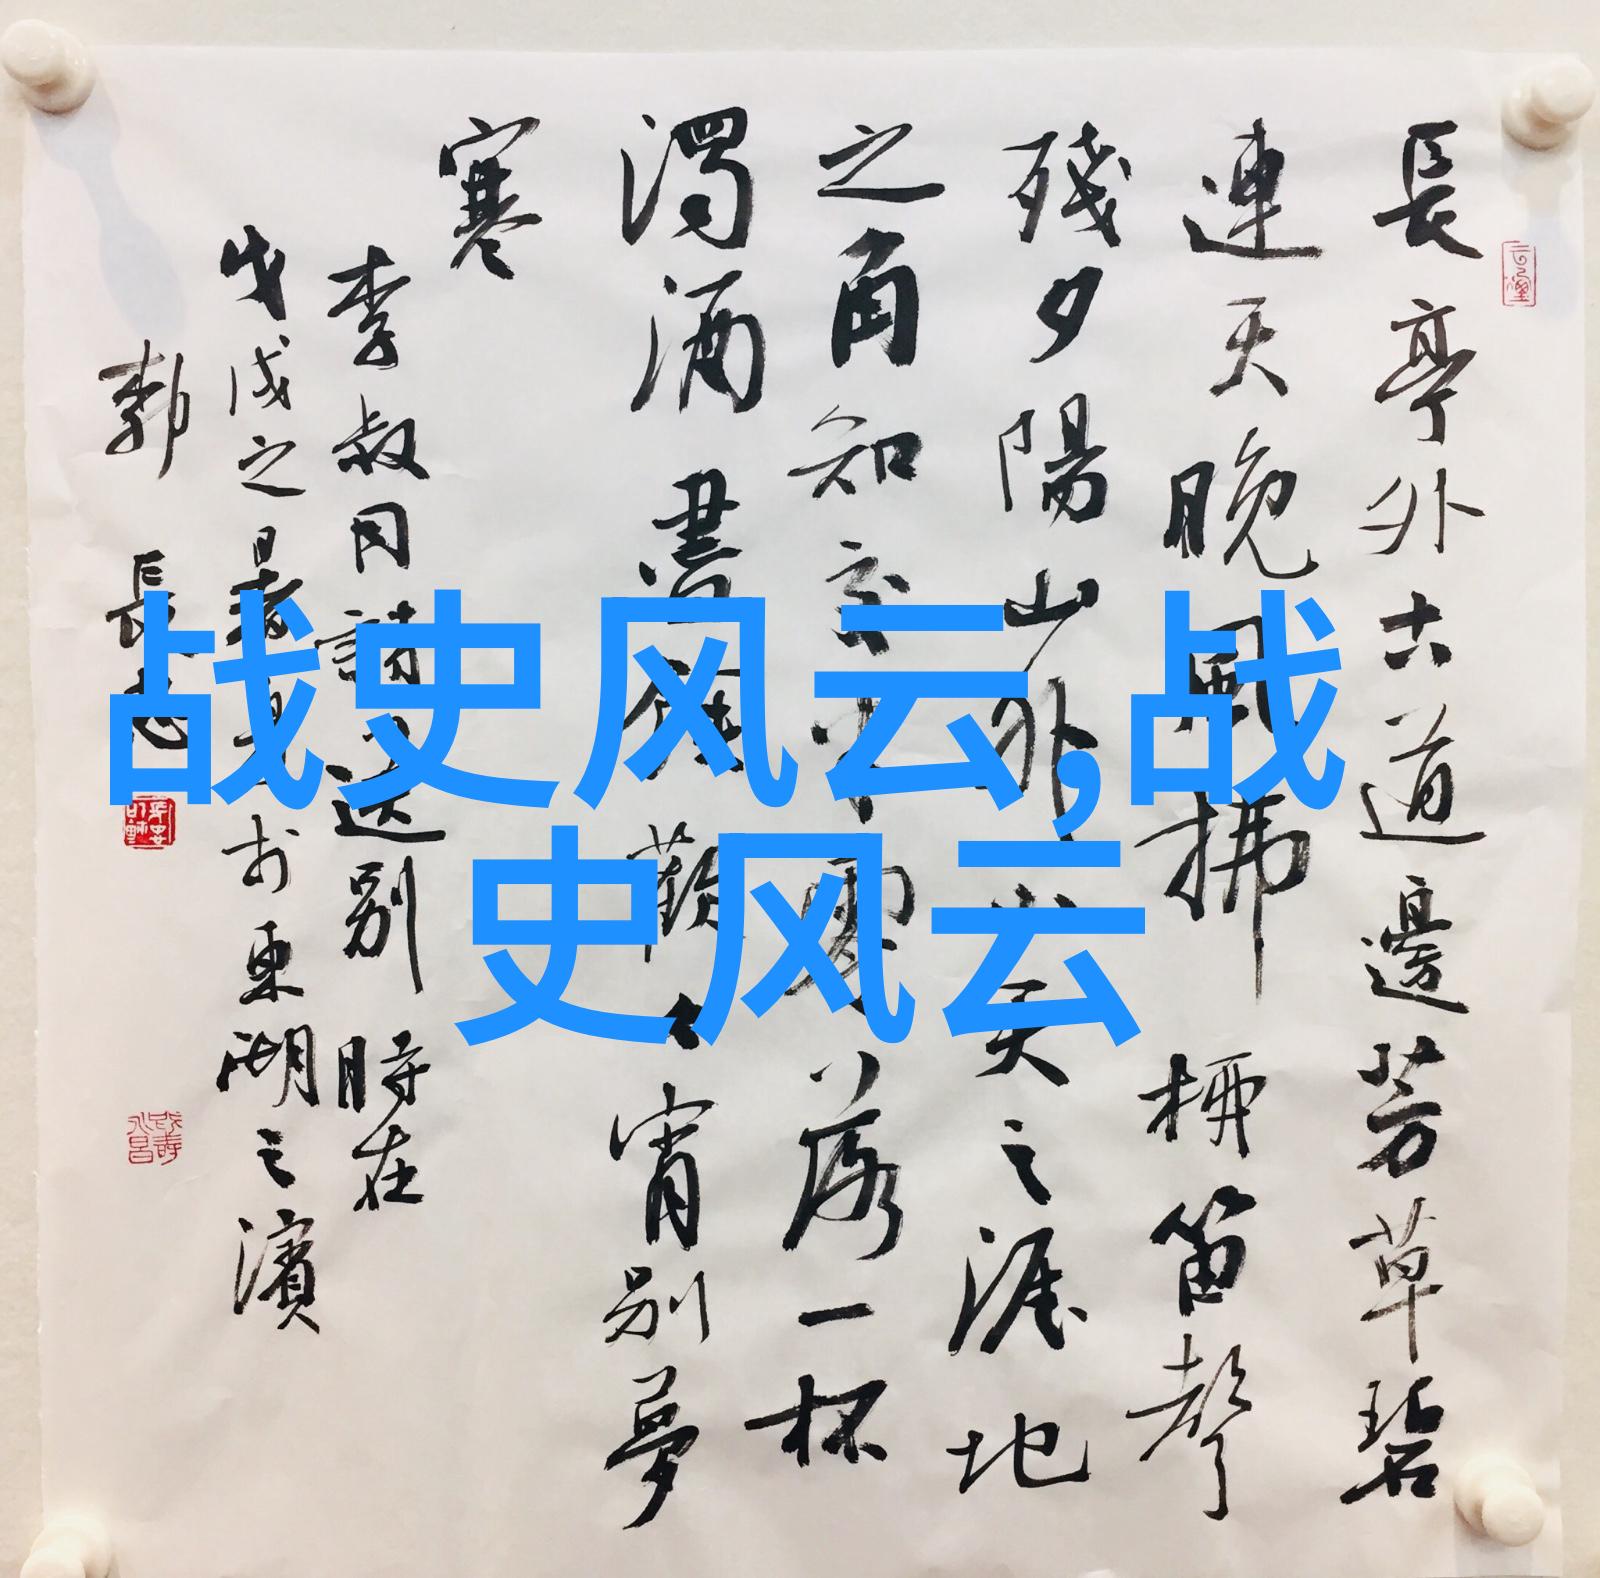 長亭外古道邊芳草碧
連天晚風拂柳笛聲
殘夕陽山外山天之涯地
之角知交半零落一杯
濁酒盡餘歡今宵別夢
寒
李叔同詩送別 時在
戊戌之於東湖之濱
郭長
战史风云,战
史风云